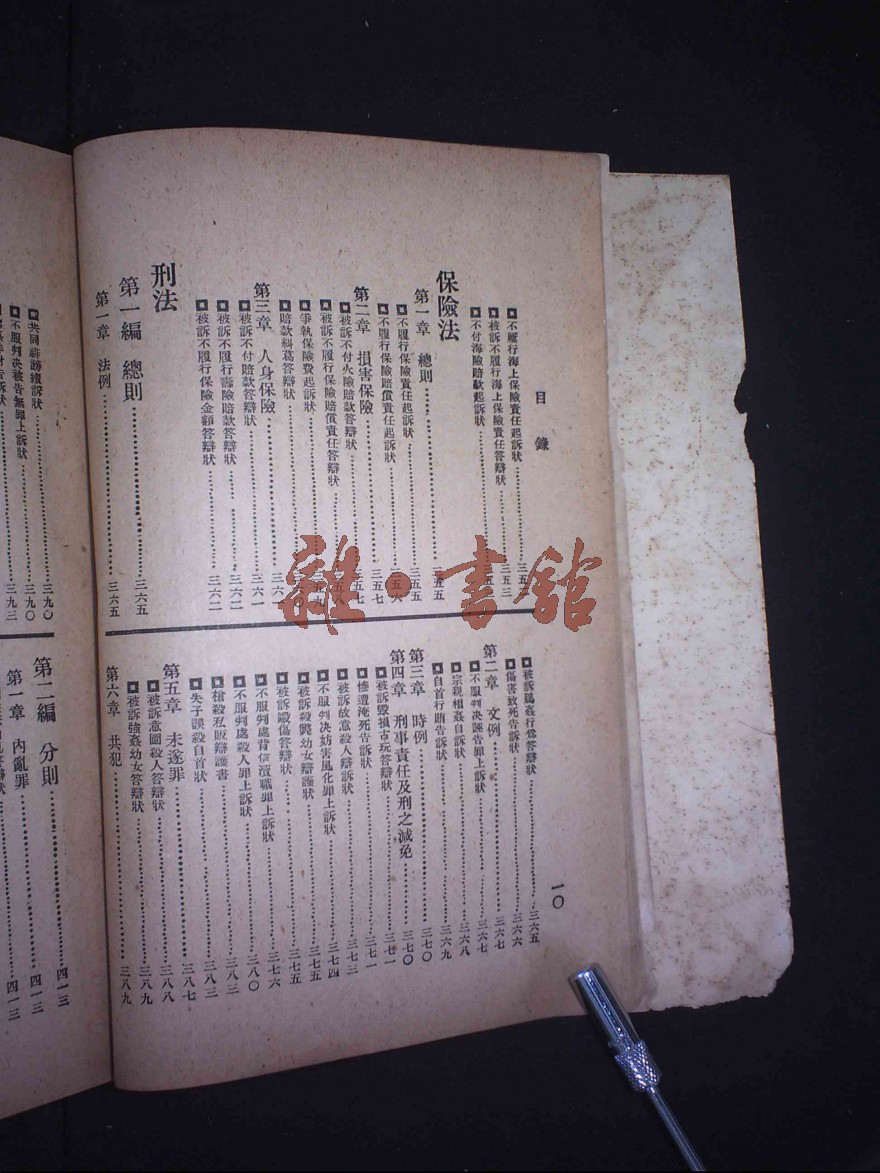 目錄
不履行海上保險責任起訴狀
被訴不履行海上保險責任答辯狀
不付海險賠款起訴狀
保險法
第一章 總則 三五五
不履行保險責任起訴狀 三五五
不履行保險賠償責任起訴狀
第二章 損害保險 三五七
被訴不付火險賠款答辯狀
被訴不履行保險賠償責任答辯狀
爭執保險費起訴狀
賠款糾葛答辯狀
第三章 人身保險 三六一
被訴不付賠款答辯狀 三六一
被訴不履行壽險賠款答辯狀 三六二
被訴不履行保險金額答辯狀 三六二
刑法
第一編 總則 三六五
第一章 法例 三六五
被訴鷄姦行爲答辯狀 三六五
傷害致死告訴狀 三六六
第二章 文例 三六七
不服判決誣告罪上訴狀 三六七
宗親相姦自訴狀 三六八
自首行賄告訴狀 三六九
第三章 時例 三七〇
第四章 刑事責任及刑之減免 三七〇
被訴毀損古玩答辯狀 三七一
慘遭淹死告訴狀 三七一
被訴故意殺人辯訴狀 三七三
不服判決妨害風化罪上訴狀 三七四
被訴殺斃幼女辯護狀 三七五
被訴毆傷答辯狀 三七五
不服判處背信瀆職罪上訴狀 三七六
不服判處殺人罪上訴狀 三八〇
槍殺私販辯護書 三八三
失子誤殺自首狀 三八三
第五章 未遂罪 三八七
被訴意圖殺人答辯狀 三八八
被訴強姦幼女答辯狀 三八九
第六章 共犯 三八九
一〇
共同誹謗續訴狀 三九〇
不服判決被告無罪上訴狀 三九〇
三九三
第二編 分則 四一三
第一章 內亂罪 四一三
四一三
雜·書館